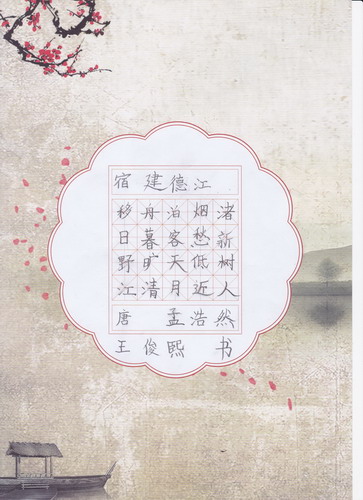 宿建德江
移舟泊烟渚
日暮客愁新
野旷天低树
江清月近人
唐 孟浩然
王俊熙 书